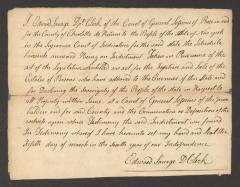 I Edward Savage Dpt Clerk of the Court of General Sessions of Peace in and
for the County of Charlotte do Return to the People of the State of New York
in the Supreme Court of Judicature for the said State the Schedule
hereunto annexed Being an Indictment Taken in Pursuance of the
act of the Legislature Entitled an act for the forfeiture and Sale of the
Estates of Persons who have adhered to the Enemies of this State and
for Declaring the Sovereignty of the People of this State in Respect to
all Property within Same at a Court of General Sessions of the Peace
held in and for said County and the Examination or Deposition of the
witness upon whose Testimony the said Indictment was found
In Testimony whereof I have hereunto set my hand and Seal this
fifth day of march in the sixth year of our Independence
Edward Savage D. Clerk